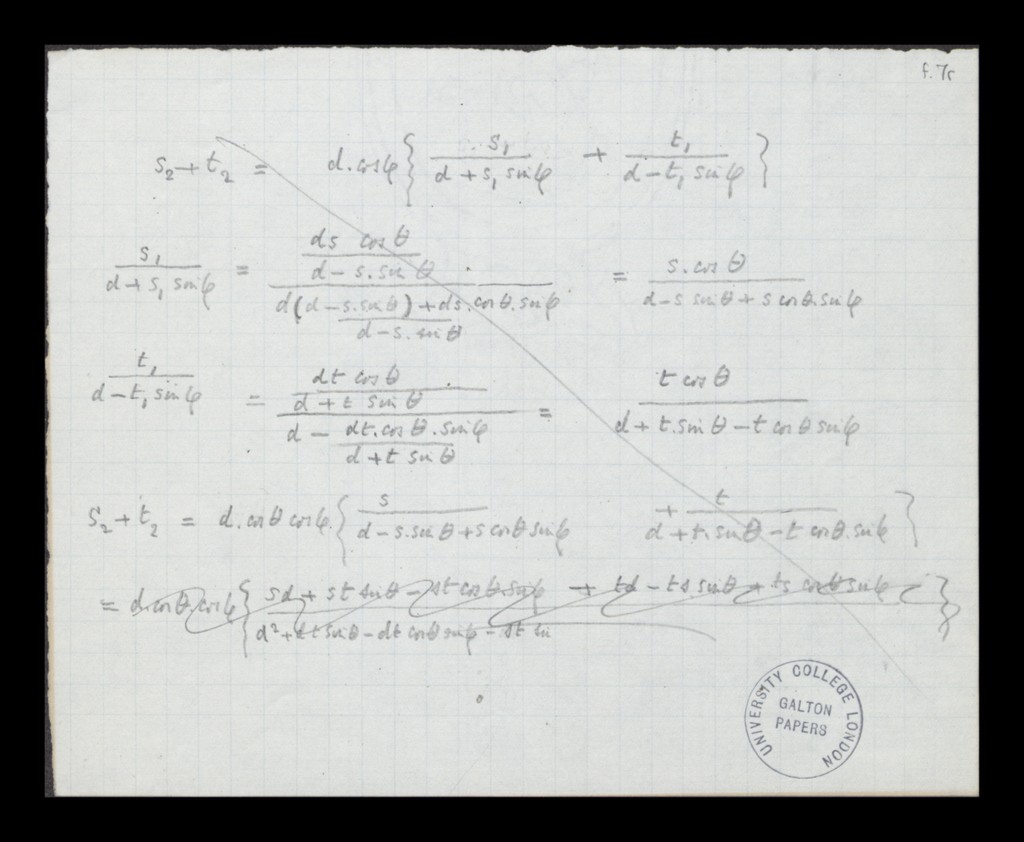 f. 7r
s₂ + t₂ = d. cos φ { s₁ / (d + s₁ sin φ) + t₁ / (d − t₁ sin φ) }
s₁ / (d + s₁ sin φ) = (ds cos θ / (d − s. sin θ)) / ((d(d − s. sin θ) + ds. cos θ. sin φ) / (d − s. sin θ)) = s. cos θ / (d − s sin θ + s cos θ. sin φ)
t₁ / (d − t₁ sin φ) = (dt cos θ / (d + t sin θ)) / (d − dt. cos θ. sin φ / (d + t sin θ)) = t cos θ / (d + t. sin θ − t cos θ sin φ)
s₂ + t₂ = d. cos θ cos φ. { s / (d − s. sin θ + s cos θ sin φ) + t / (d + t. sin θ − t cos θ. sin φ) }
= d. cos θ. cos φ { (sd + st sin θ − st cos θ. sin φ + td − ts sin θ + ts cos θ sin φ) / (d² + dt sin θ − dt cos θ sin φ − st sin) }
UNIVERSITY COLLEGE LONDON
GALTON
PAPERS